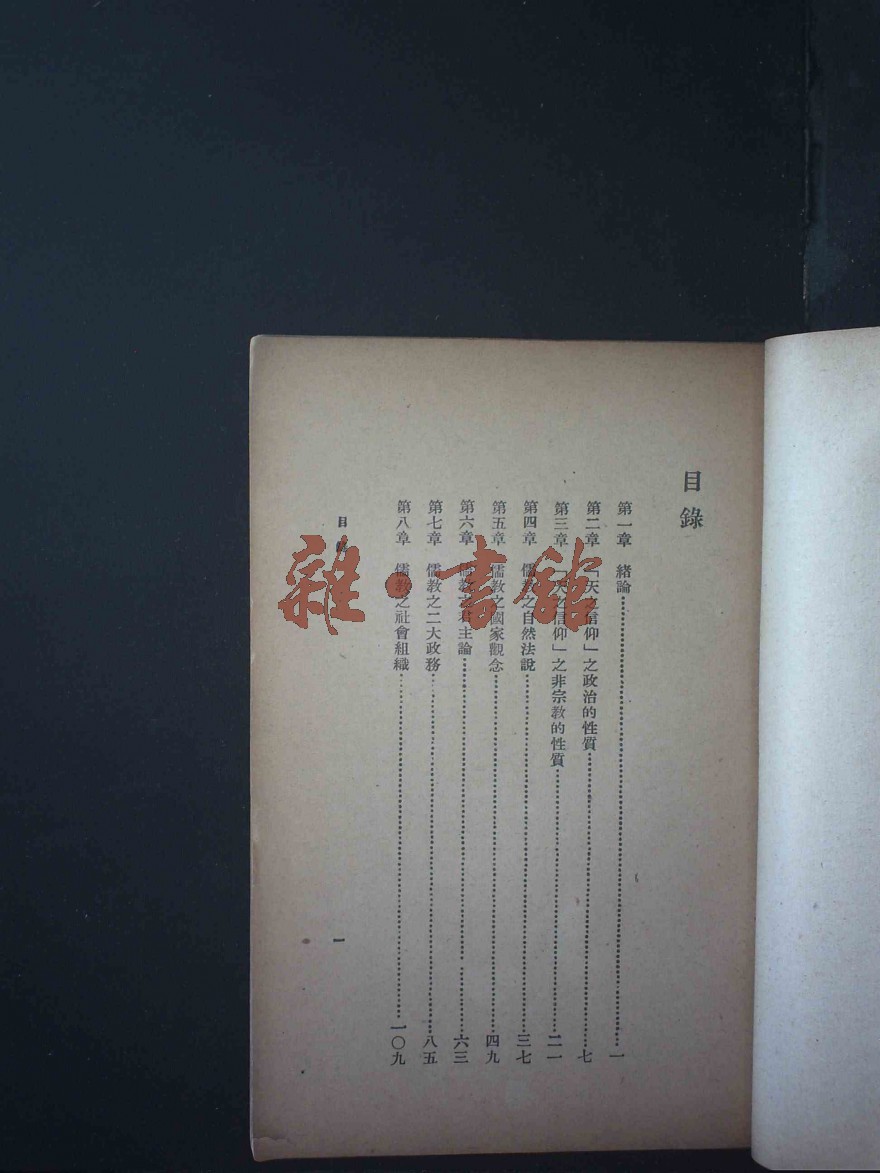 目錄
第一章　緒論……一
第二章　「天之信仰」之政治的性質……七
第三章　「天之信仰」之非宗教的性質……二一
第四章　儒教之自然法說……三七
第五章　儒教之國家觀念……四九
第六章　儒教之君主論……六三
第七章　儒教之二大政務……八五
第八章　儒教之社會組織……一〇九
目錄
一
雜·書館